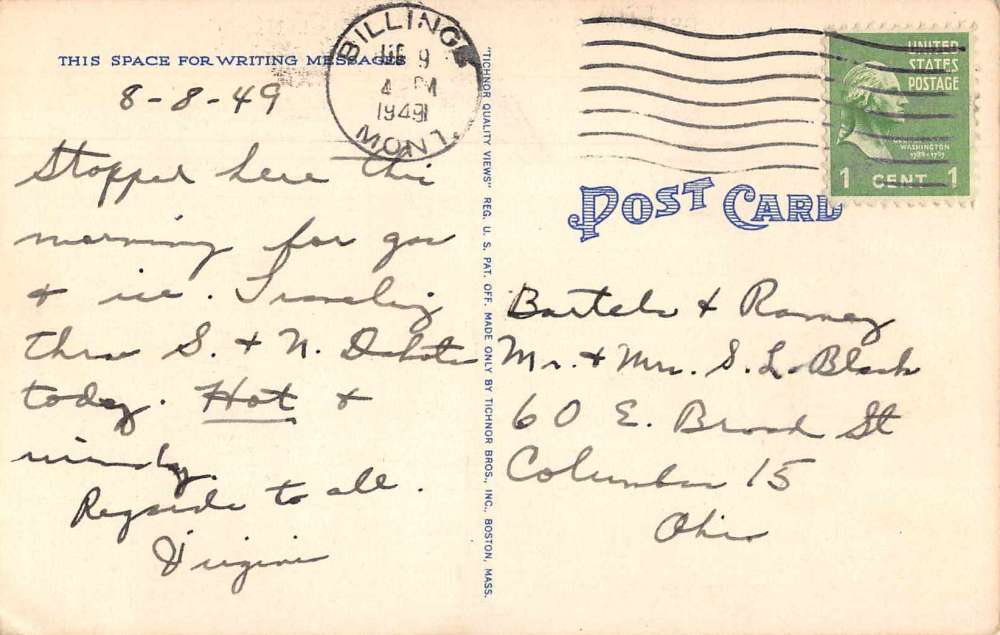 THIS SPACE FOR WRITING MESSAGES
8-8-49
Stopped here this
morning for gas
+ ice. Traveling
thru S. + N. Dakota
today. Hot +
windy.
Regards to all.
Virginia
BILLINGS
9
4 PM
1949
MONT.
"TICHNOR QUALITY VIEWS" REG. U. S. PAT. OFF. MADE ONLY BY TICHNOR BROS., INC., BOSTON, MASS.
UNITED
STATES
POSTAGE
WASHINGTON
1789-1797
1 CENT 1
POST CARD
Bartels + Ramey
Mr. + Mrs. S. L. Black
60 E. Broad St
Columbus 15
Ohio